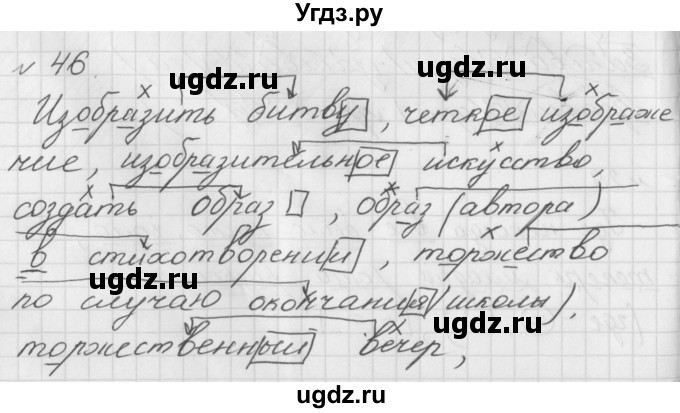 Угдз.ру
№ 46.
ugdz.ru ugdz.ru
Изобразить битву, четкое изображе
ние, изобразительное искусство,
создать образ, образ (автора)
ugdz.ru
в стихотворении, торжество
ugdz.ru
по случаю окончания (школы),
ugdz.ru
торжественный вечер,
ugdz.ru